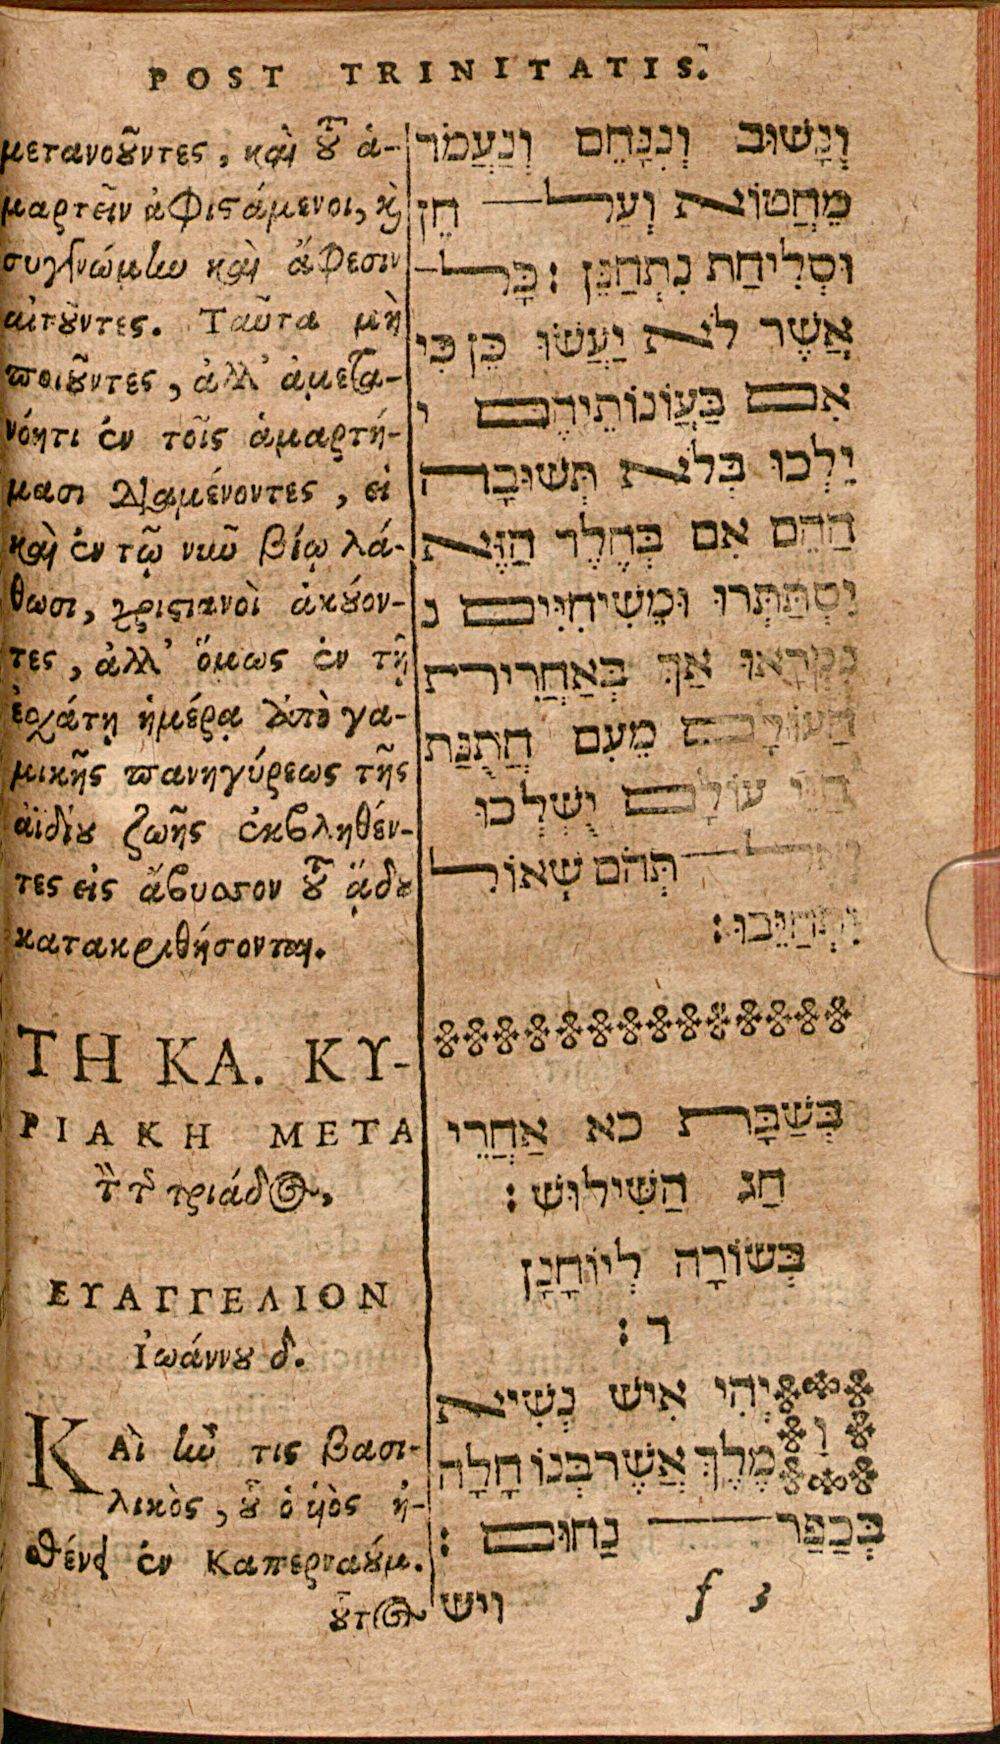 POST TRINITATIS.
μετανοοῦντες, καὶ τοῦ ἁ-
μαρτεῖν ἀφιστάμενοι, καὶ
συγγνώμην καὶ ἄφεσιν
αἰτοῦντες. Ταῦτα μὴ
ποιοῦντες, ἀλλ' ἀμετα-
νόητι ἐν τοῖς ἁμαρτή-
μασι διαμένοντες, εἰ
καὶ ἐν τῷ νῦν βίῳ λά-
θωσι, χριστιανοὶ ἀκούον-
τες, ἀλλ' ὅμως ἐν τῇ
ἐσχάτῃ ἡμέρᾳ ἀπὸ γα-
μικῆς πανηγύρεως τῆς
ἀϊδίου ζωῆς ἐκβληθέν-
τες εἰς ἄβυσσον τοῦ ᾅδου
κατακριθήσονται.
ΤΗ ΚΑ. ΚΥ-
ΡΙΑΚΗ ΜΕΤΑ
τὴν τῆς τριάδος,
ΕΥΑΓΓΕΛΙΟΝ
Ἰωάννου δ.
ΚΑὶ ἦν τις βασι-
λικὸς, οὗ ὁ υἱὸς ἠ-
σθένει ἐν Καπερναούμ.
οὗτος
וְנָשׁוּב וְנִנָּחֵם וְנַעֲמֹר
מֵחֲטוֹא וְעַל חֵן
וּסְלִיחַת נִתְחַנֵּן : כָּל
אֲשֶׁר לֹא יַעֲשׂוּ כֵּן כִּי
אִם בַּעֲוֹנוֹתֵיהֶם י
יֵלְכוּ בְּלֹא תְּשׁוּבָה
הַהֵם אִם בְּחֶלֶד הַזֶּה
יִסְתַּתְּרוּ וּמְשִׁיחִיִּים נ
נִקְרְאוּ אַךְ בְּאַחֲרִית
הָעוֹלָם מֵעִם חֲתֻנַּת
חַיֵּי עוֹלָם יֻשְׁלְכוּ
תְּהֹם שְׁאוֹל
וְיִתְחַיְּבוּ :
בְּשַׁבָּת כא אַחֲרֵי
חַג הַשִּׁילוּשׁ :
בְּשׂוֹרָה לְיוֹחָנָן
ד :
וַיְהִי אִישׁ נְשִׂיא
מֶלֶךְ אֲשֶׁר בְּנוֹ חָלָה
בְּכַפַר נַחוּם :
f 3 ויש